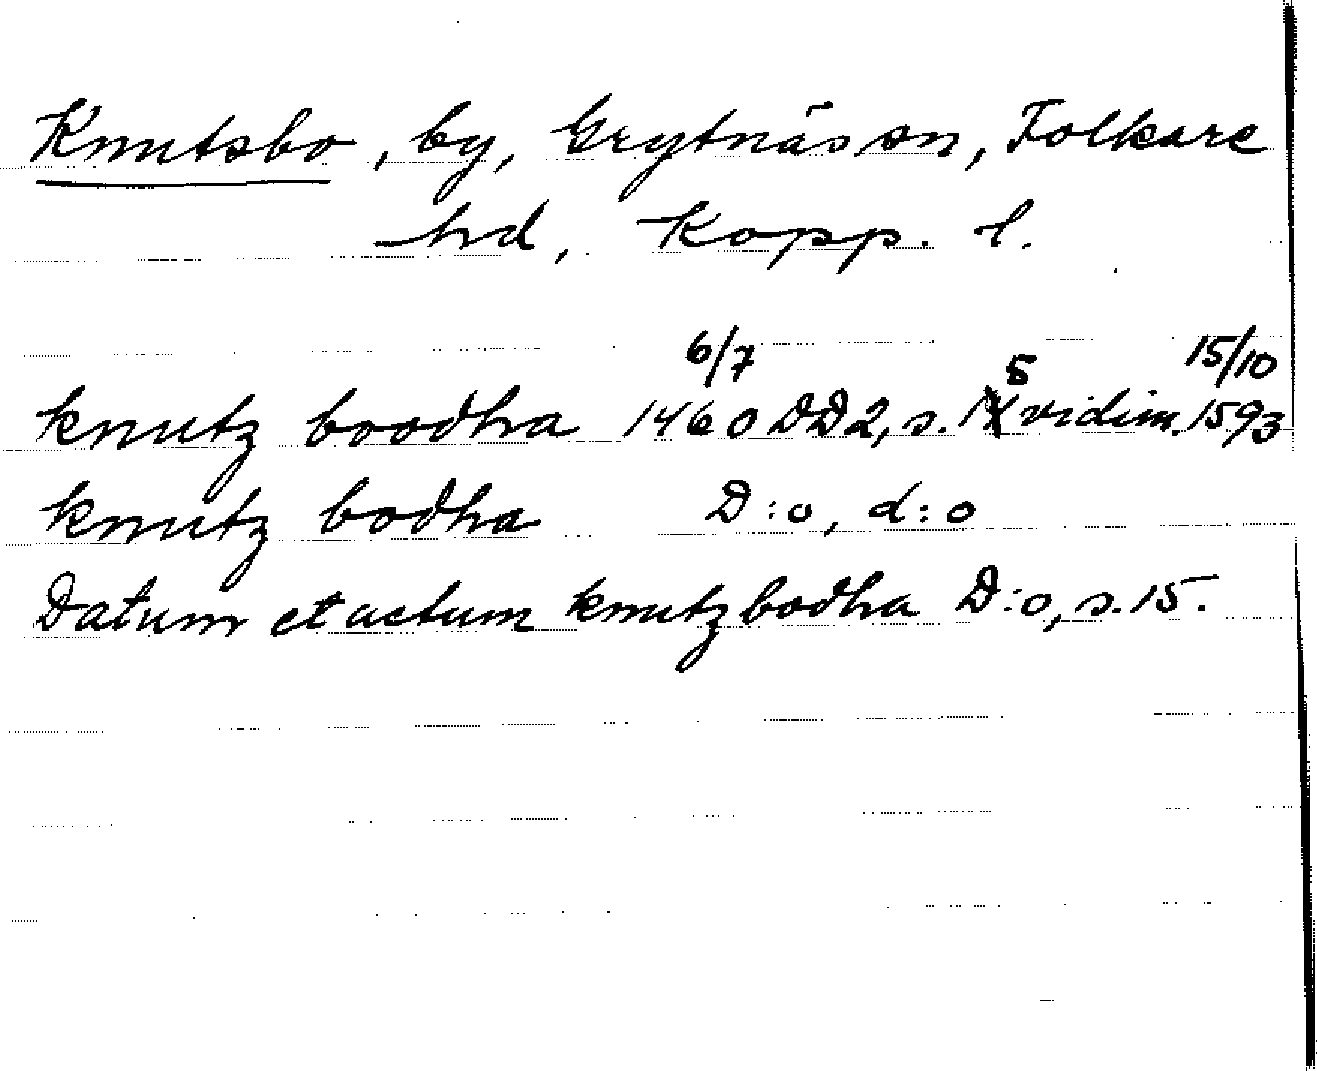 Knutsbo, by, Grytnäs sn, Folkare
hd, Kopp. l.
knutz boodha 1460 6/7 DD2, s. 15 vidim. 1593 15/10
knutz bodha D:o, d:o
Datum et actum knutzbodha D:o, s. 15.